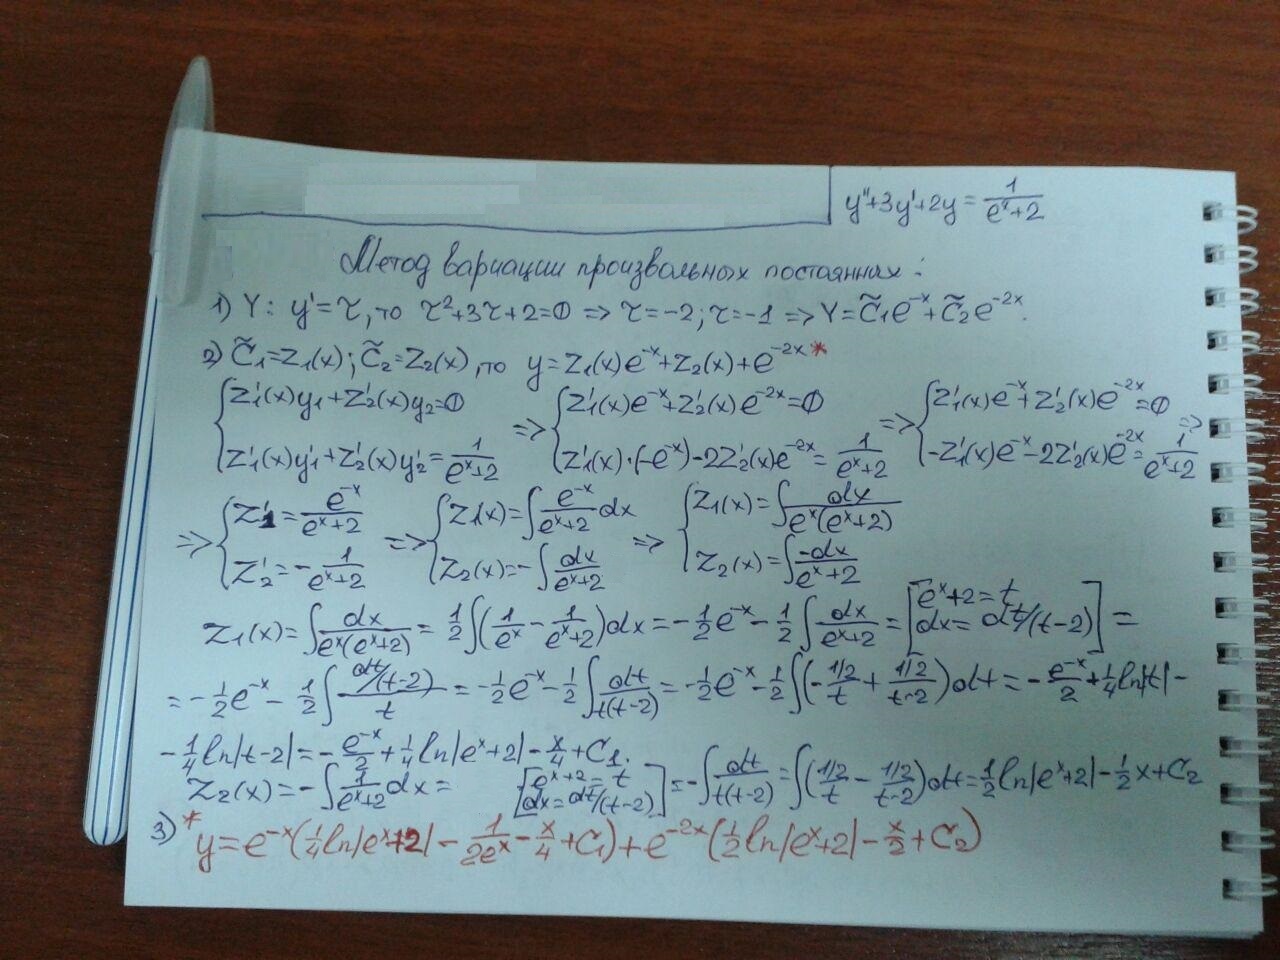 y''+3y'+2y = 1/(eˣ+2)
Метод вариации произвольных постоянных:
1) Y: y'=τ, то τ²+3τ+2=0 => τ=-2; τ=-1 => Y=C̃₁e⁻ˣ+C̃₂e⁻²ˣ.
2) C̃₁=Z₁(x); C̃₂=Z₂(x), то y=Z₁(x)e⁻ˣ+Z₂(x)+e⁻²ˣ*
{Z₁'(x)y₁+Z₂'(x)y₂=0 => {Z₁'(x)e⁻ˣ+Z₂'(x)e⁻²ˣ=0 => {Z₁'(x)e⁻ˣ+Z₂'(x)e⁻²ˣ=0 =>
Z₁'(x)y₁'+Z₂'(x)y₂'=1/(eˣ+2) Z₁'(x)·(-e⁻ˣ)-2Z₂'(x)e⁻²ˣ=1/(eˣ+2) -Z₁'(x)e⁻ˣ-2Z₂'(x)e⁻²ˣ=1/(eˣ+2)
=> {Z₁'=e⁻ˣ/(eˣ+2) => {Z₁(x)=∫e⁻ˣ/(eˣ+2)dx => {Z₁(x)=∫dx/(eˣ(eˣ+2))
Z₂'=-1/(eˣ+2) Z₂(x)=-∫dx/(eˣ+2) Z₂(x)=∫-dx/(eˣ+2)
Z₁(x)=∫dx/(eˣ(eˣ+2))=1/2∫(1/eˣ-1/(eˣ+2))dx=-1/2e⁻ˣ-1/2∫dx/(eˣ+2)=[eˣ+2=t dx=dt/(t-2)]=
=-1/2e⁻ˣ-1/2∫(dt/(t-2))/t=-1/2e⁻ˣ-1/2∫dt/(t(t-2))=-1/2e⁻ˣ-1/2∫(-(1/2)/t+(1/2)/(t-2))dt=-e⁻ˣ/2+1/4ln|t|-
-1/4ln|t-2|=-e⁻ˣ/2+1/4ln|eˣ+2|-x/4+C₁.
Z₂(x)=-∫1/(eˣ+2)dx=[eˣ+2=t dx=dt/(t-2)]=-∫dt/(t(t-2))=∫((1/2)/t-(1/2)/(t-2))dt=1/2ln|eˣ+2|-1/2x+C₂
3) *y=e⁻ˣ(1/4ln|eˣ+2|-1/(2eˣ)-x/4+C₁)+e⁻²ˣ(1/2ln|eˣ+2|-x/2+C₂)